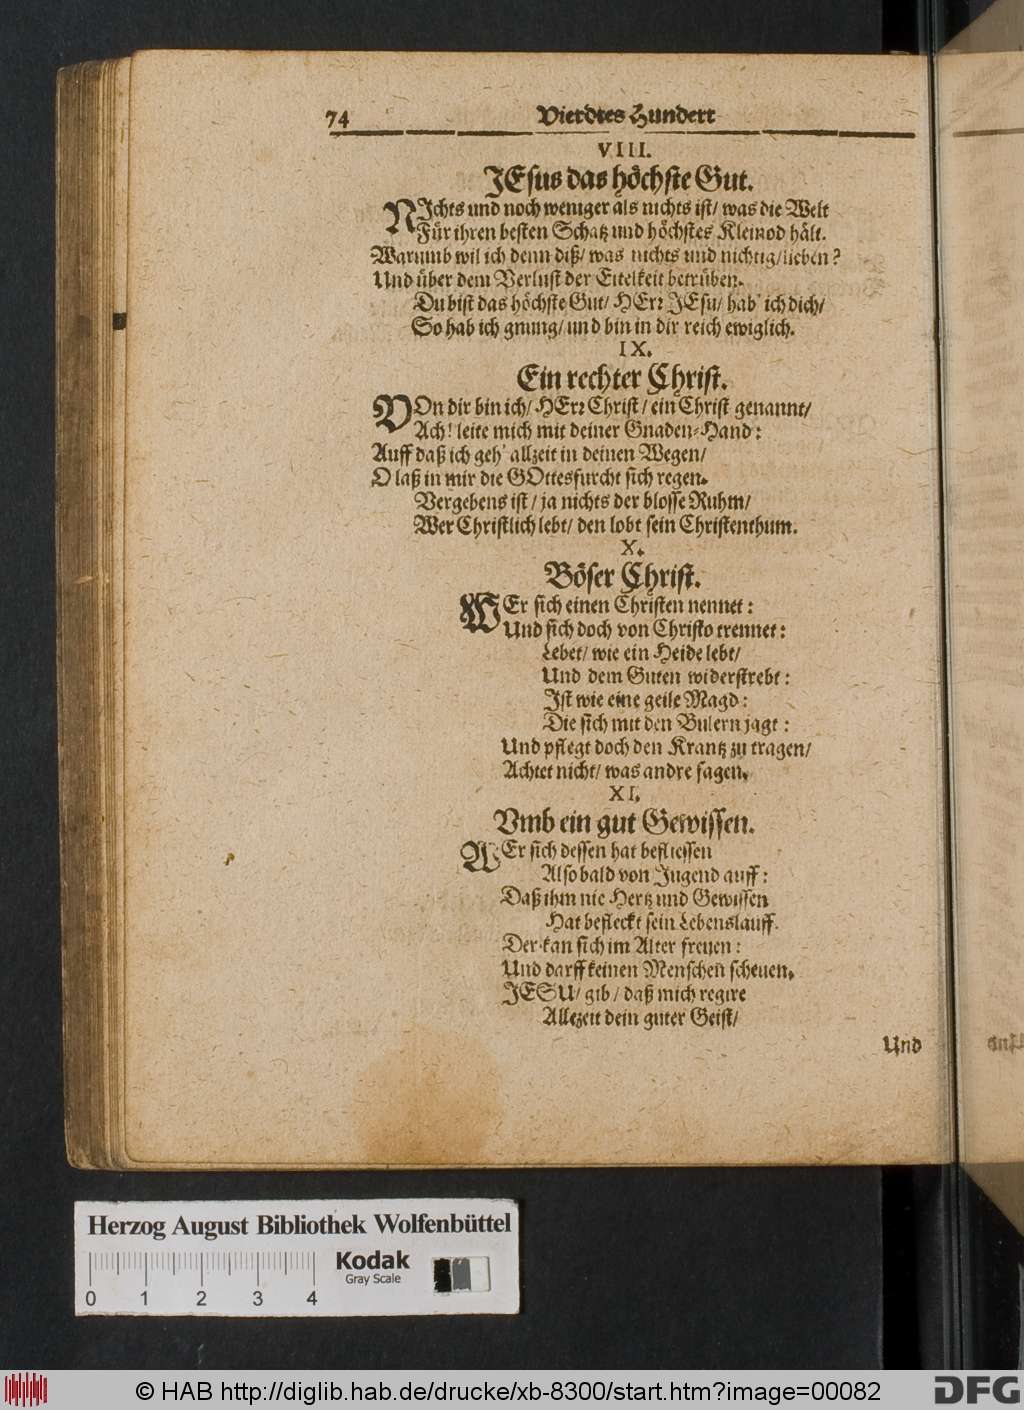 74 Vierdtes Hundert
VIII.
JEsus das höchste Gut.
NIchts und noch weniger als nichts ist/ was die Welt
Für ihren besten Schatz und höchstes Kleinod hält.
Warumb wil ich denn diß/ was nichts und nichtig/ lieben?
Und über dem Verlust der Eitelkeit betrüben.
Du bist das höchste Gut/ HErr JEsu/ hab' ich dich/
So hab ich gnung/ und bin in dir reich ewiglich.
IX.
Ein rechter Christ.
VOn dir bin ich/ HErr Christ/ ein Christ genannt/
Ach! leite mich mit deiner Gnaden-Hand:
Auff daß ich geh' allzeit in deinen Wegen/
O laß in mir die GOttesfurcht sich regen.
Vergebens ist/ ja nichts der blosse Ruhm/
Wer Christlich lebt/ den lobt sein Christenthum.
X.
Böser Christ.
WEr sich einen Christen nennet:
Und sich doch von Christo trennet:
Lebet/ wie ein Heide lebt/
Und dem Guten widerstrebt:
Ist wie eine geile Magd:
Die sich mit den Bulern jagt:
Und pflegt doch den Krantz zu tragen/
Achtet nicht/ was andre sagen.
XI.
Vmb ein gut Gewissen.
WEr sich dessen hat befliessen
Alsobald von Jugend auff:
Daß ihm nie Hertz und Gewissen
Hat befleckt sein Lebenslauff.
Der kan sich im Alter freuen:
Und darff keinen Menschen scheuen.
JESU/ gib/ daß mich regire
Allezeit dein guter Geist/
Und
Herzog August Bibliothek Wolfenbüttel
Kodak
Gray Scale
0 1 2 3 4
© HAB http://diglib.hab.de/drucke/xb-8300/start.htm?image=00082
DFG